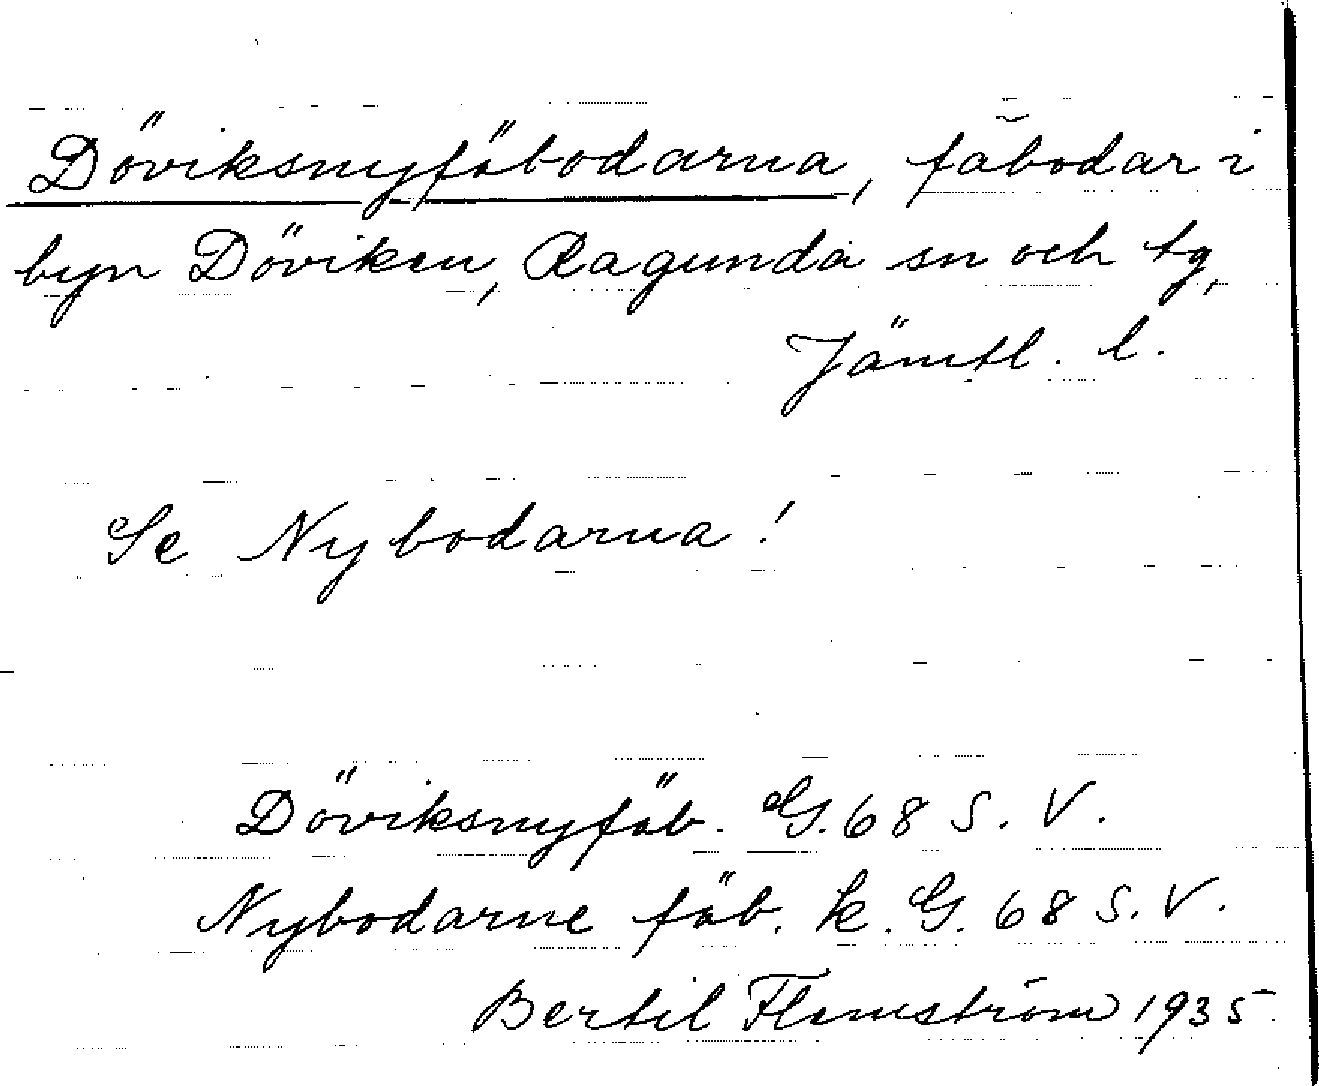 Döviksnyfäbodarna, fäbodar i
byn Döviken, Ragunda sn och tg,
Jämtl. l.
Se Nybodarna!
Döviksnyfäb. G. 68 S. V.
Nybodarne fäb. k. G. 68 S. V.
Bertil Flemström 1935